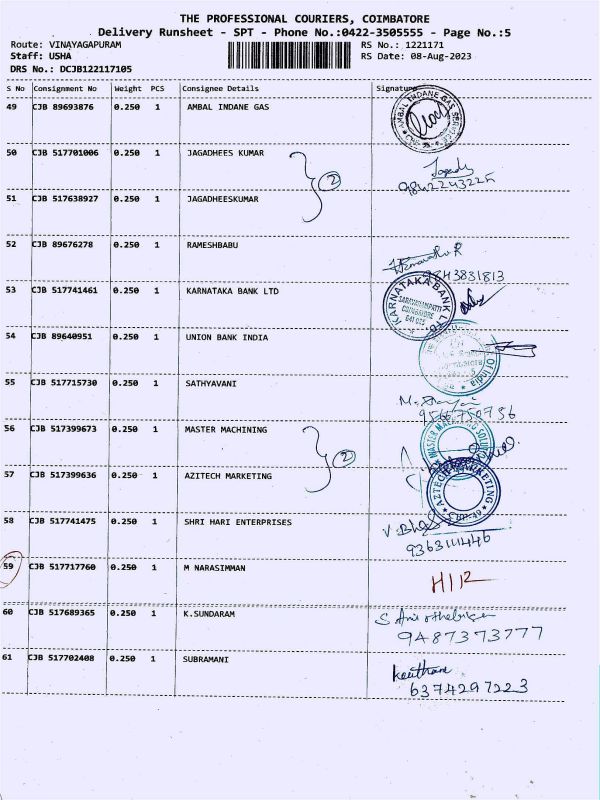 THE PROFESSIONAL COURIERS, COIMBATORE
Delivery Runsheet - SPT - Phone No.:0422-3505555 - Page No.:5
Route: VINAYAGAPURAM RS No.: 1221171
Staff: USHA RS Date: 08-Aug-2023
DRS No.: DCJB122117105
S No Consignment No Weight PCS Consignee Details Signature
49 CJB 89693876 0.250 1 AMBAL INDANE GAS
AMBAL INDANE GAS
50 CJB 517701006 0.250 1 JAGADHEES KUMAR
2
9842243225
51 CJB 517638927 0.250 1 JAGADHEESKUMAR
52 CJB 89676278 0.250 1 RAMESHBABU
9843831813
53 CJB 517741461 0.250 1 KARNATAKA BANK LTD
KARNATAKA BANK LTD.
SARAVANAMPATTI
COIMBATORE
54 CJB 89640951 0.250 1 UNION BANK INDIA
of India
55 CJB 517715730 0.250 1 SATHYAVANI
9566750756
56 CJB 517399673 0.250 1 MASTER MACHINING
2
57 CJB 517399636 0.250 1 AZITECH MARKETING
AZTECH MARKETING
58 CJB 517741475 0.250 1 SHRI HARI ENTERPRISES
9363111446
59 CJB 517717760 0.250 1 M NARASIMMAN
60 CJB 517689365 0.250 1 K.SUNDARAM
9487373777
61 CJB 517702408 0.250 1 SUBRAMANI
6374297223